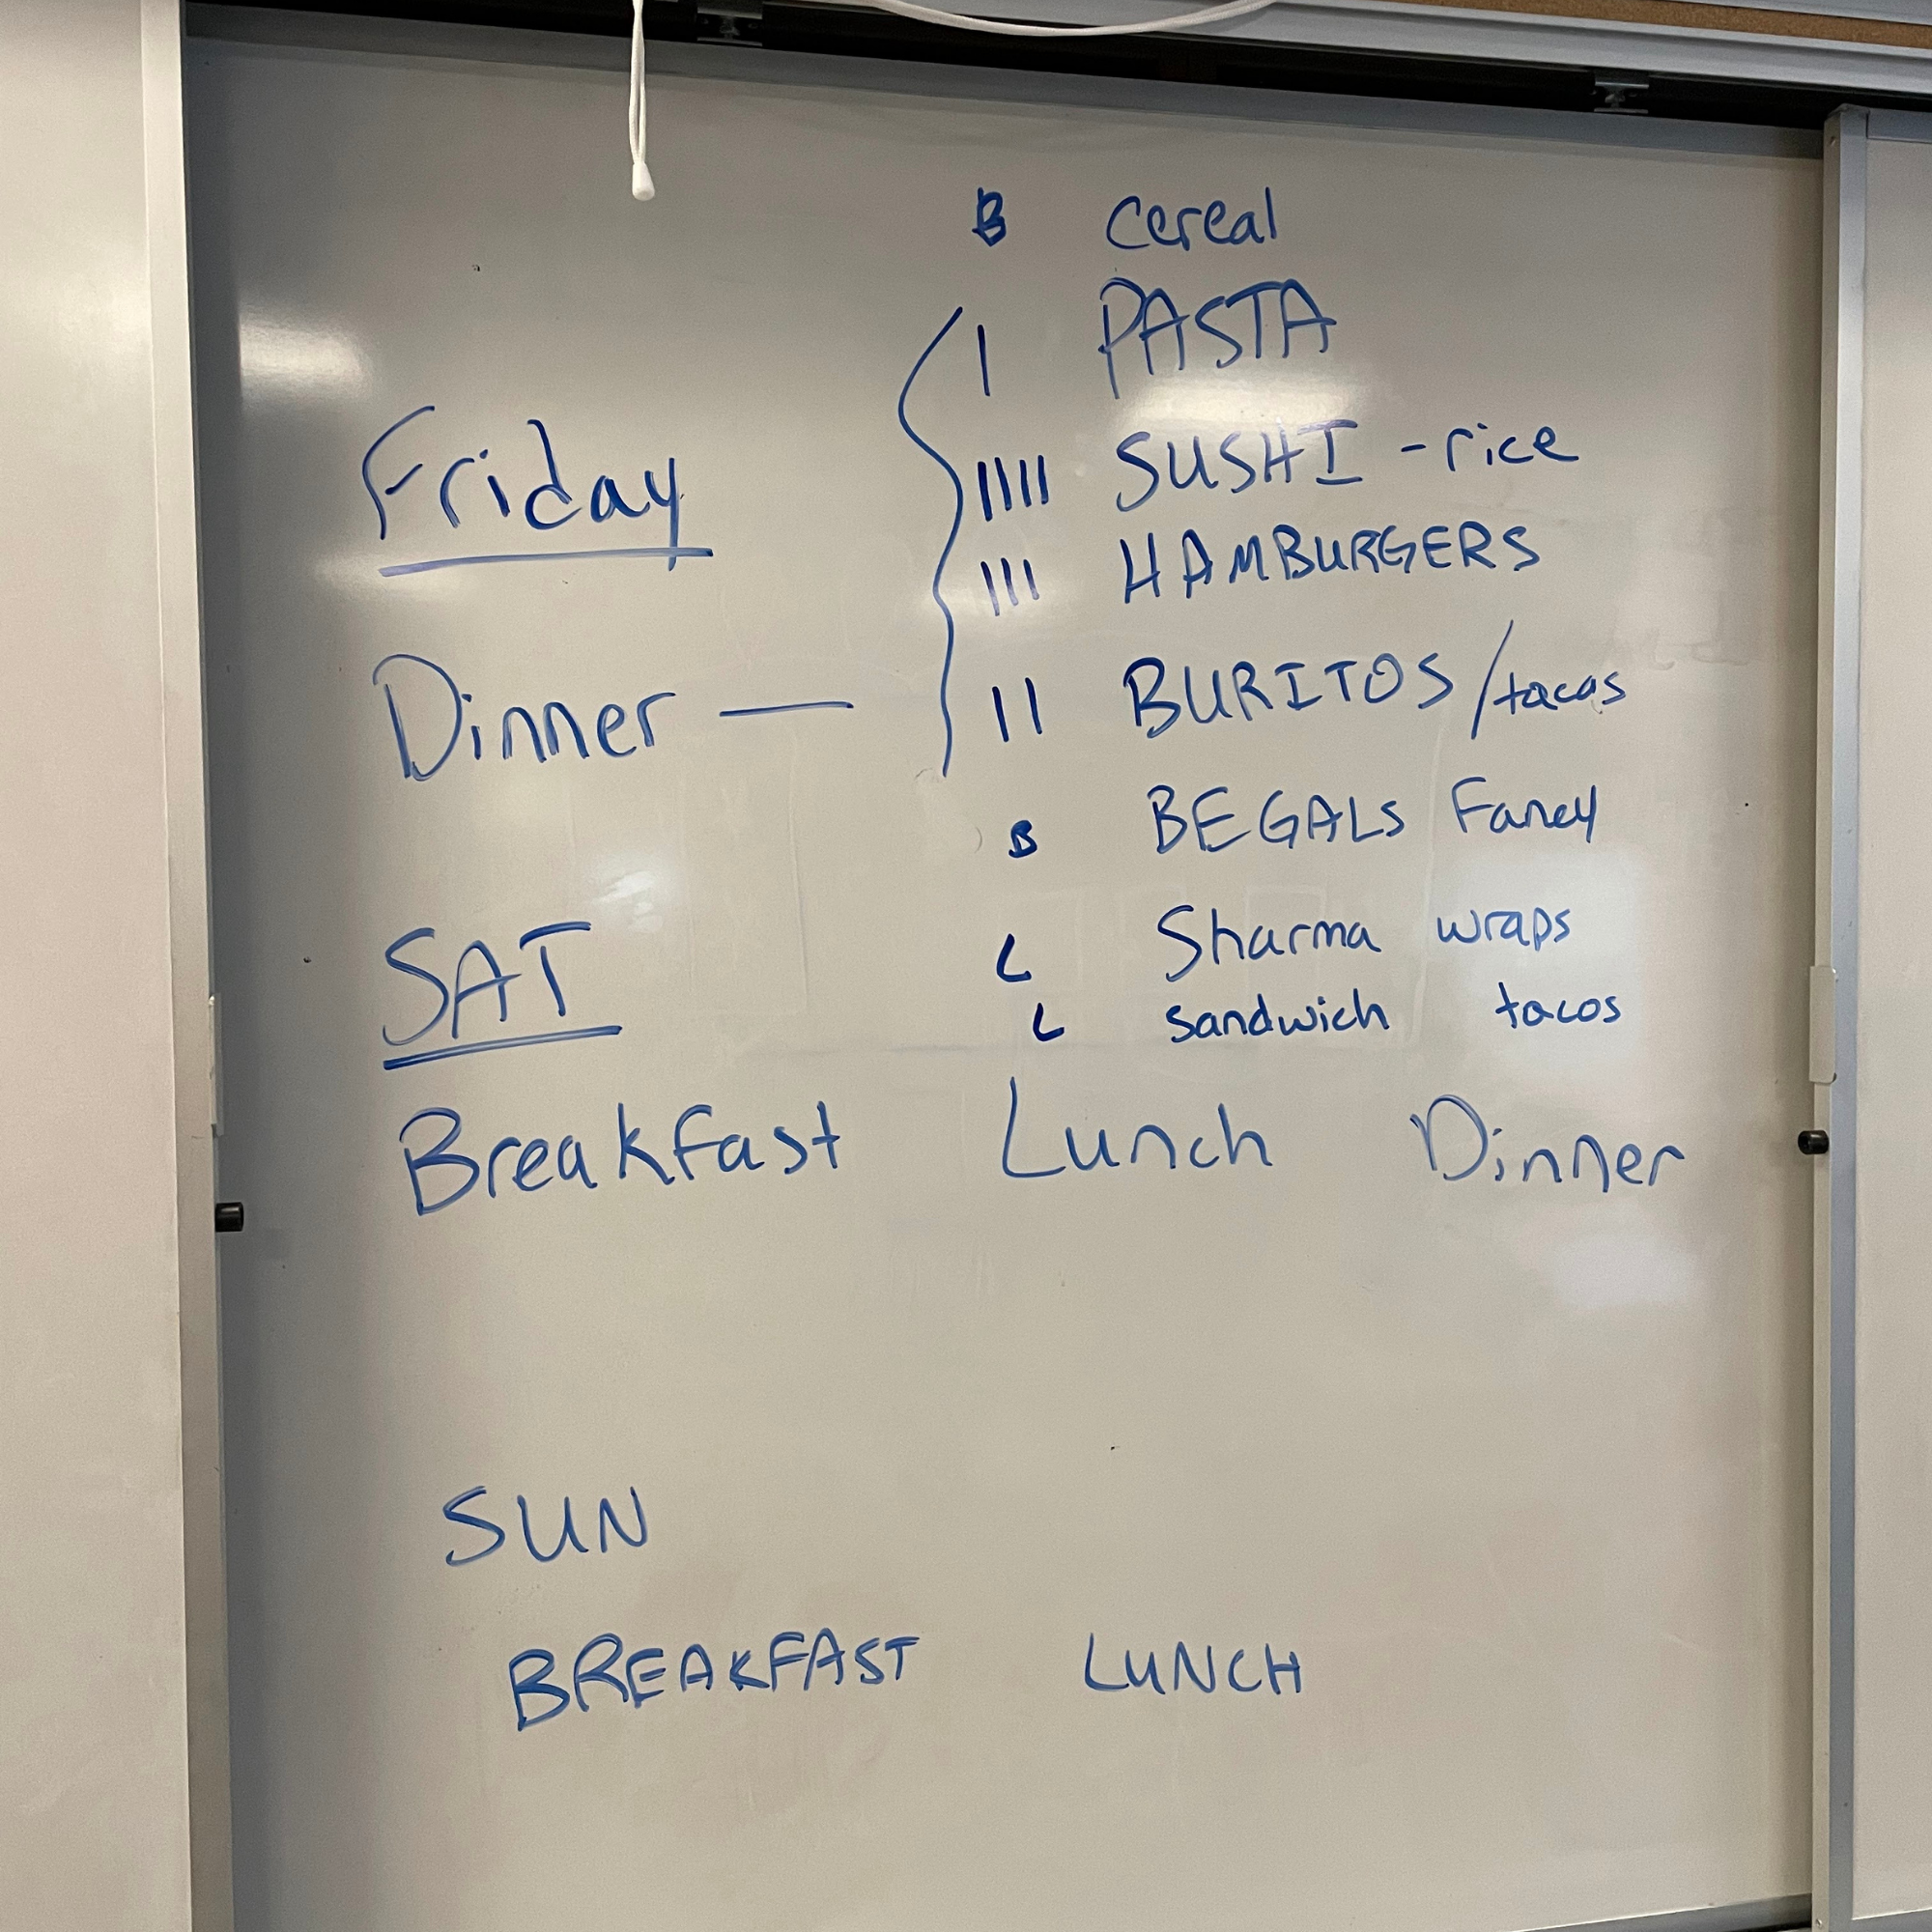 B cereal
I PASTA
Friday
IIII SUSHI - rice
III HAMBURGERS
Dinner — II BURITOS / tacos
B BEGALS Fancy
SAT
L Sharma wraps
L sandwich tacos
Breakfast Lunch Dinner
SUN
BREAKFAST LUNCH